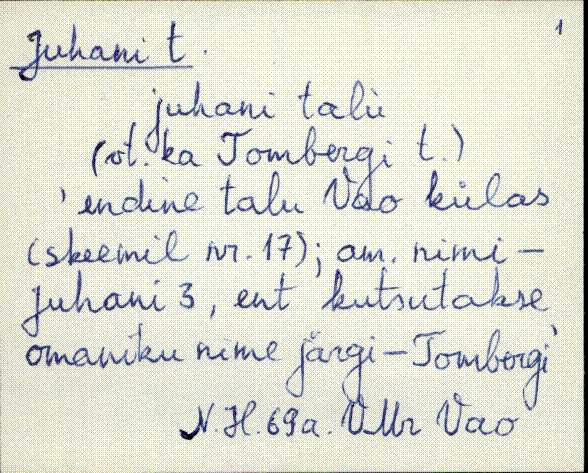 1
Juhani t.
juhani talu
(vt. ka Tombergi t.)
'endine talu Vao külas
(skeemil nr. 17); am. nimi –
Juhani 3, ent kutsutakse
omaniku nime järgi – Tombergi
N.H. 69 a. VMr Vao